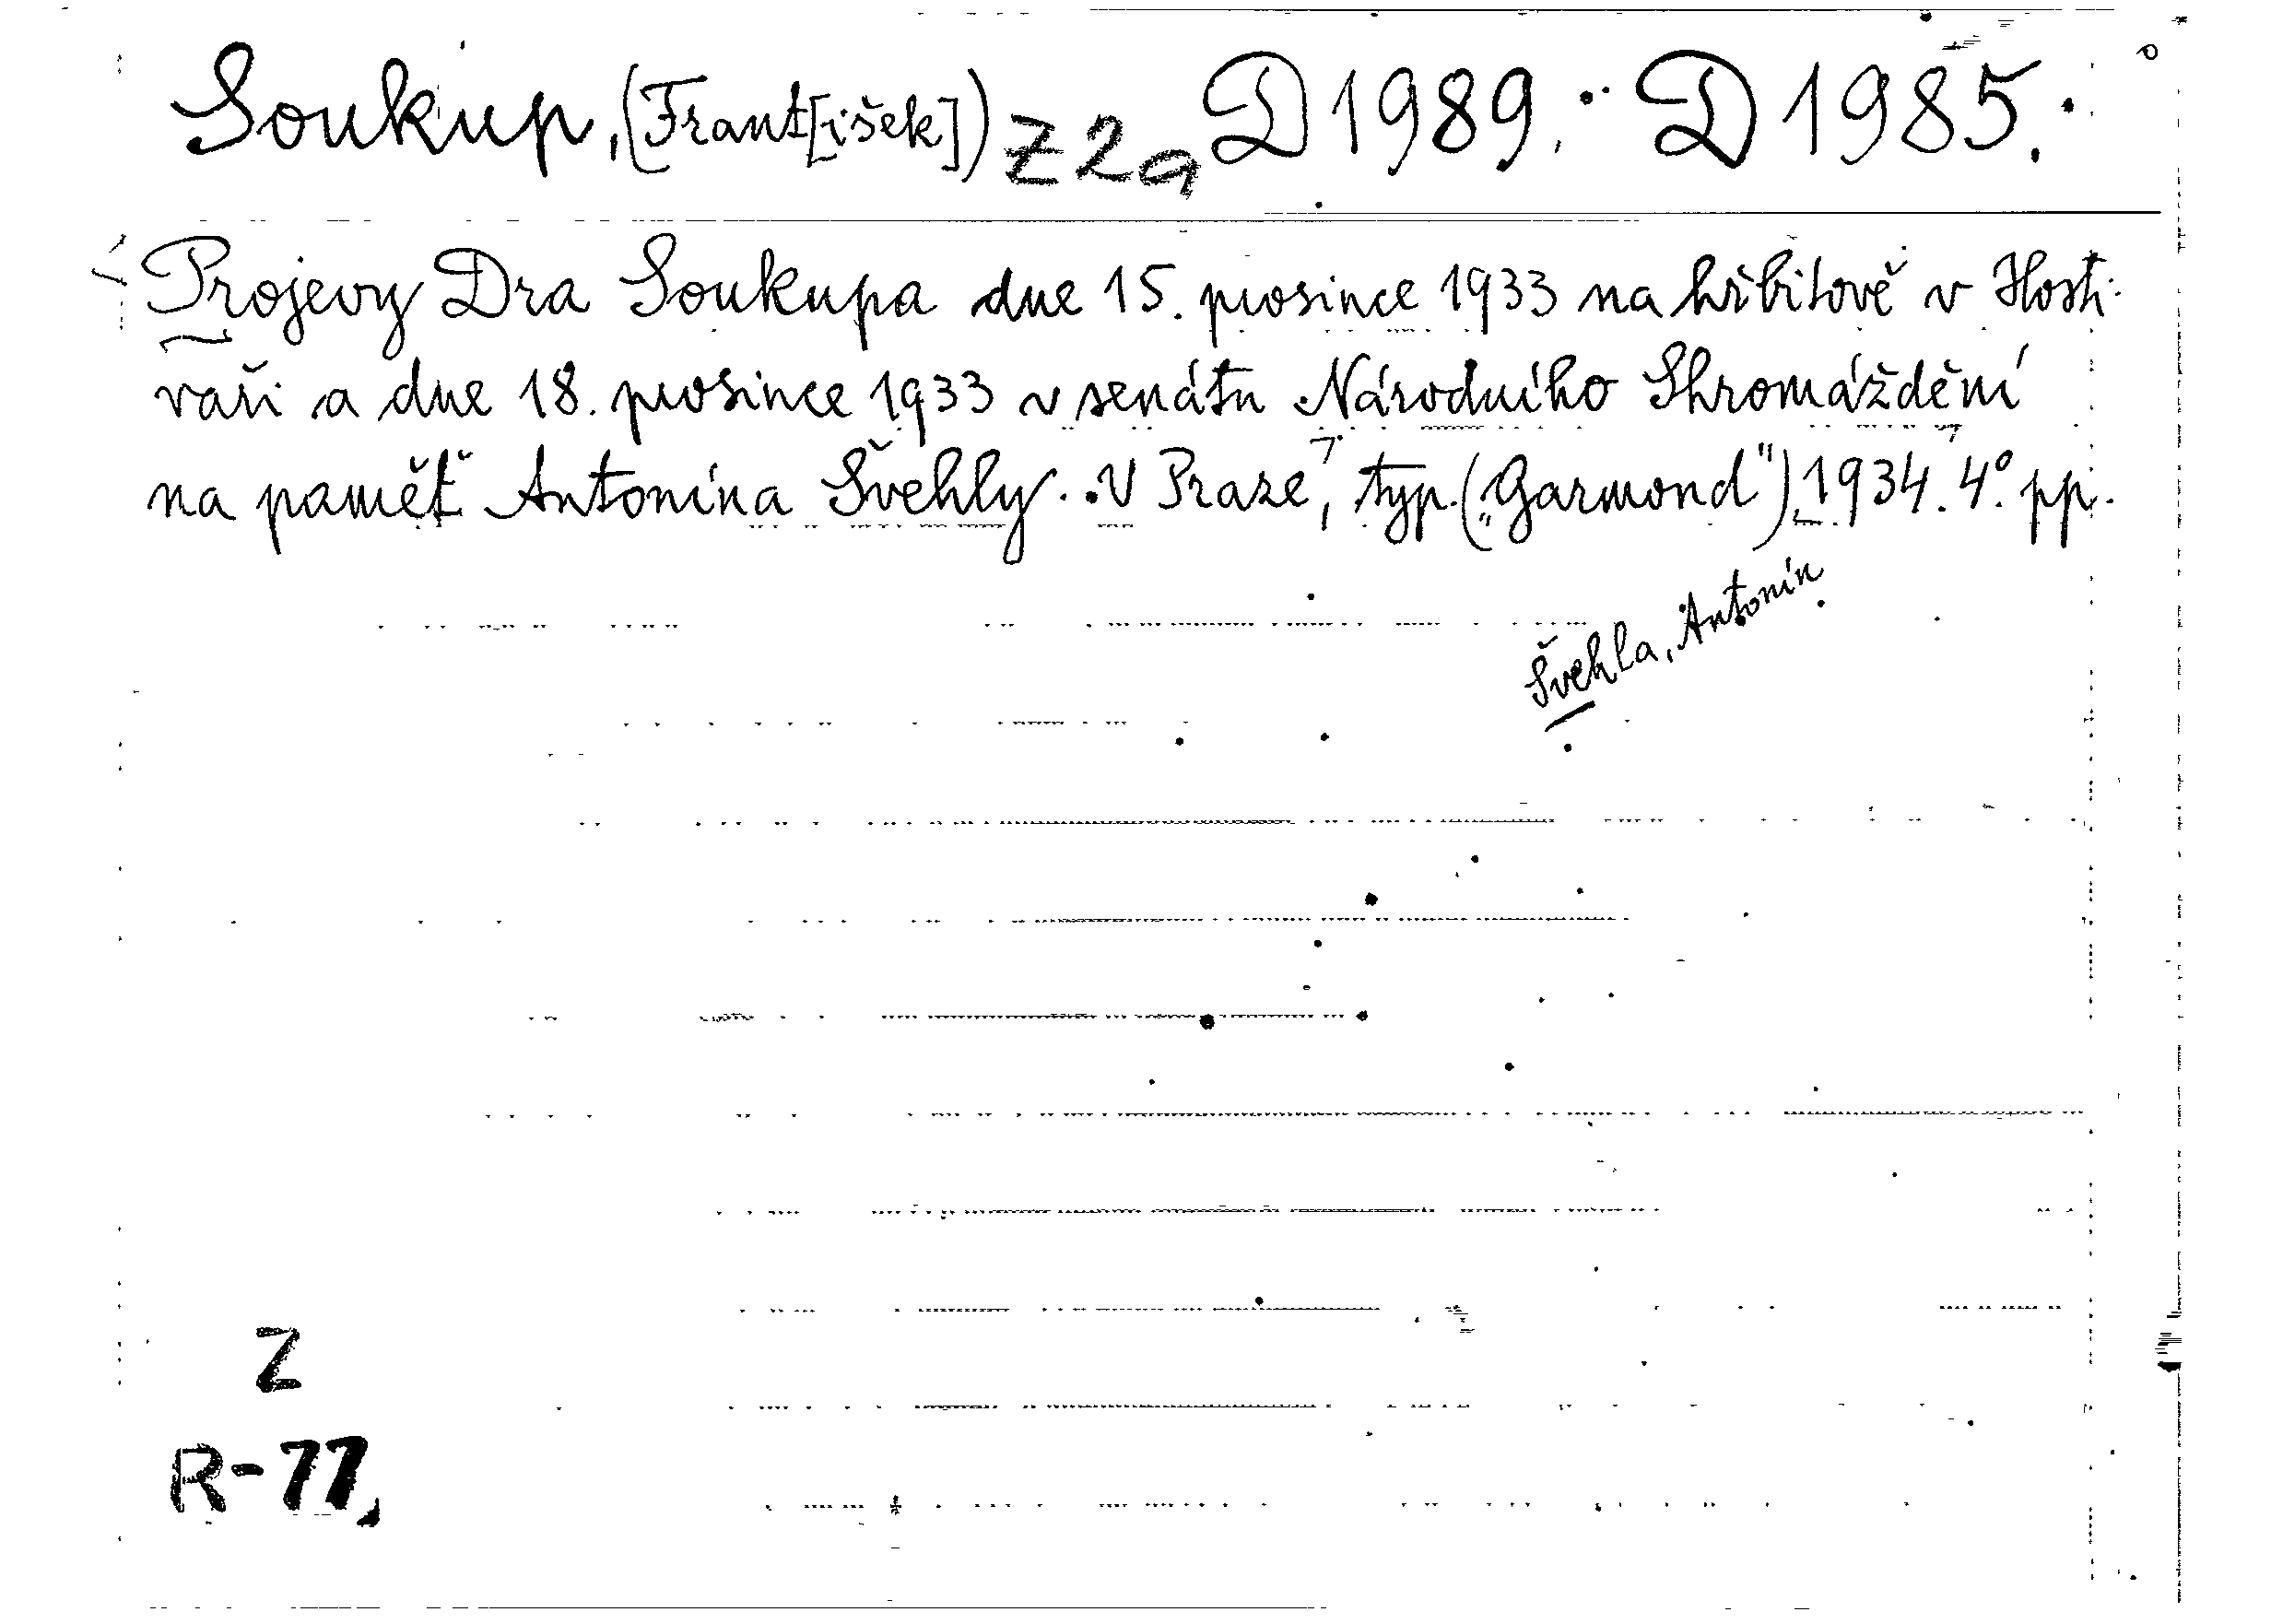 Soukup, (Frant[išek]) Z 2a D 1989. D 1985.
Projevy Dra Soukupa dne 15. prosince 1933 na hřbitově v Hosti-
vaři a dne 18. prosince 1933 v senátu Národního Shromáždění
na paměť Antonína Švehly. V Praze, typ. („Garmond"), 1934. 4° pp.
Švehla, Antonín
Z
R-77